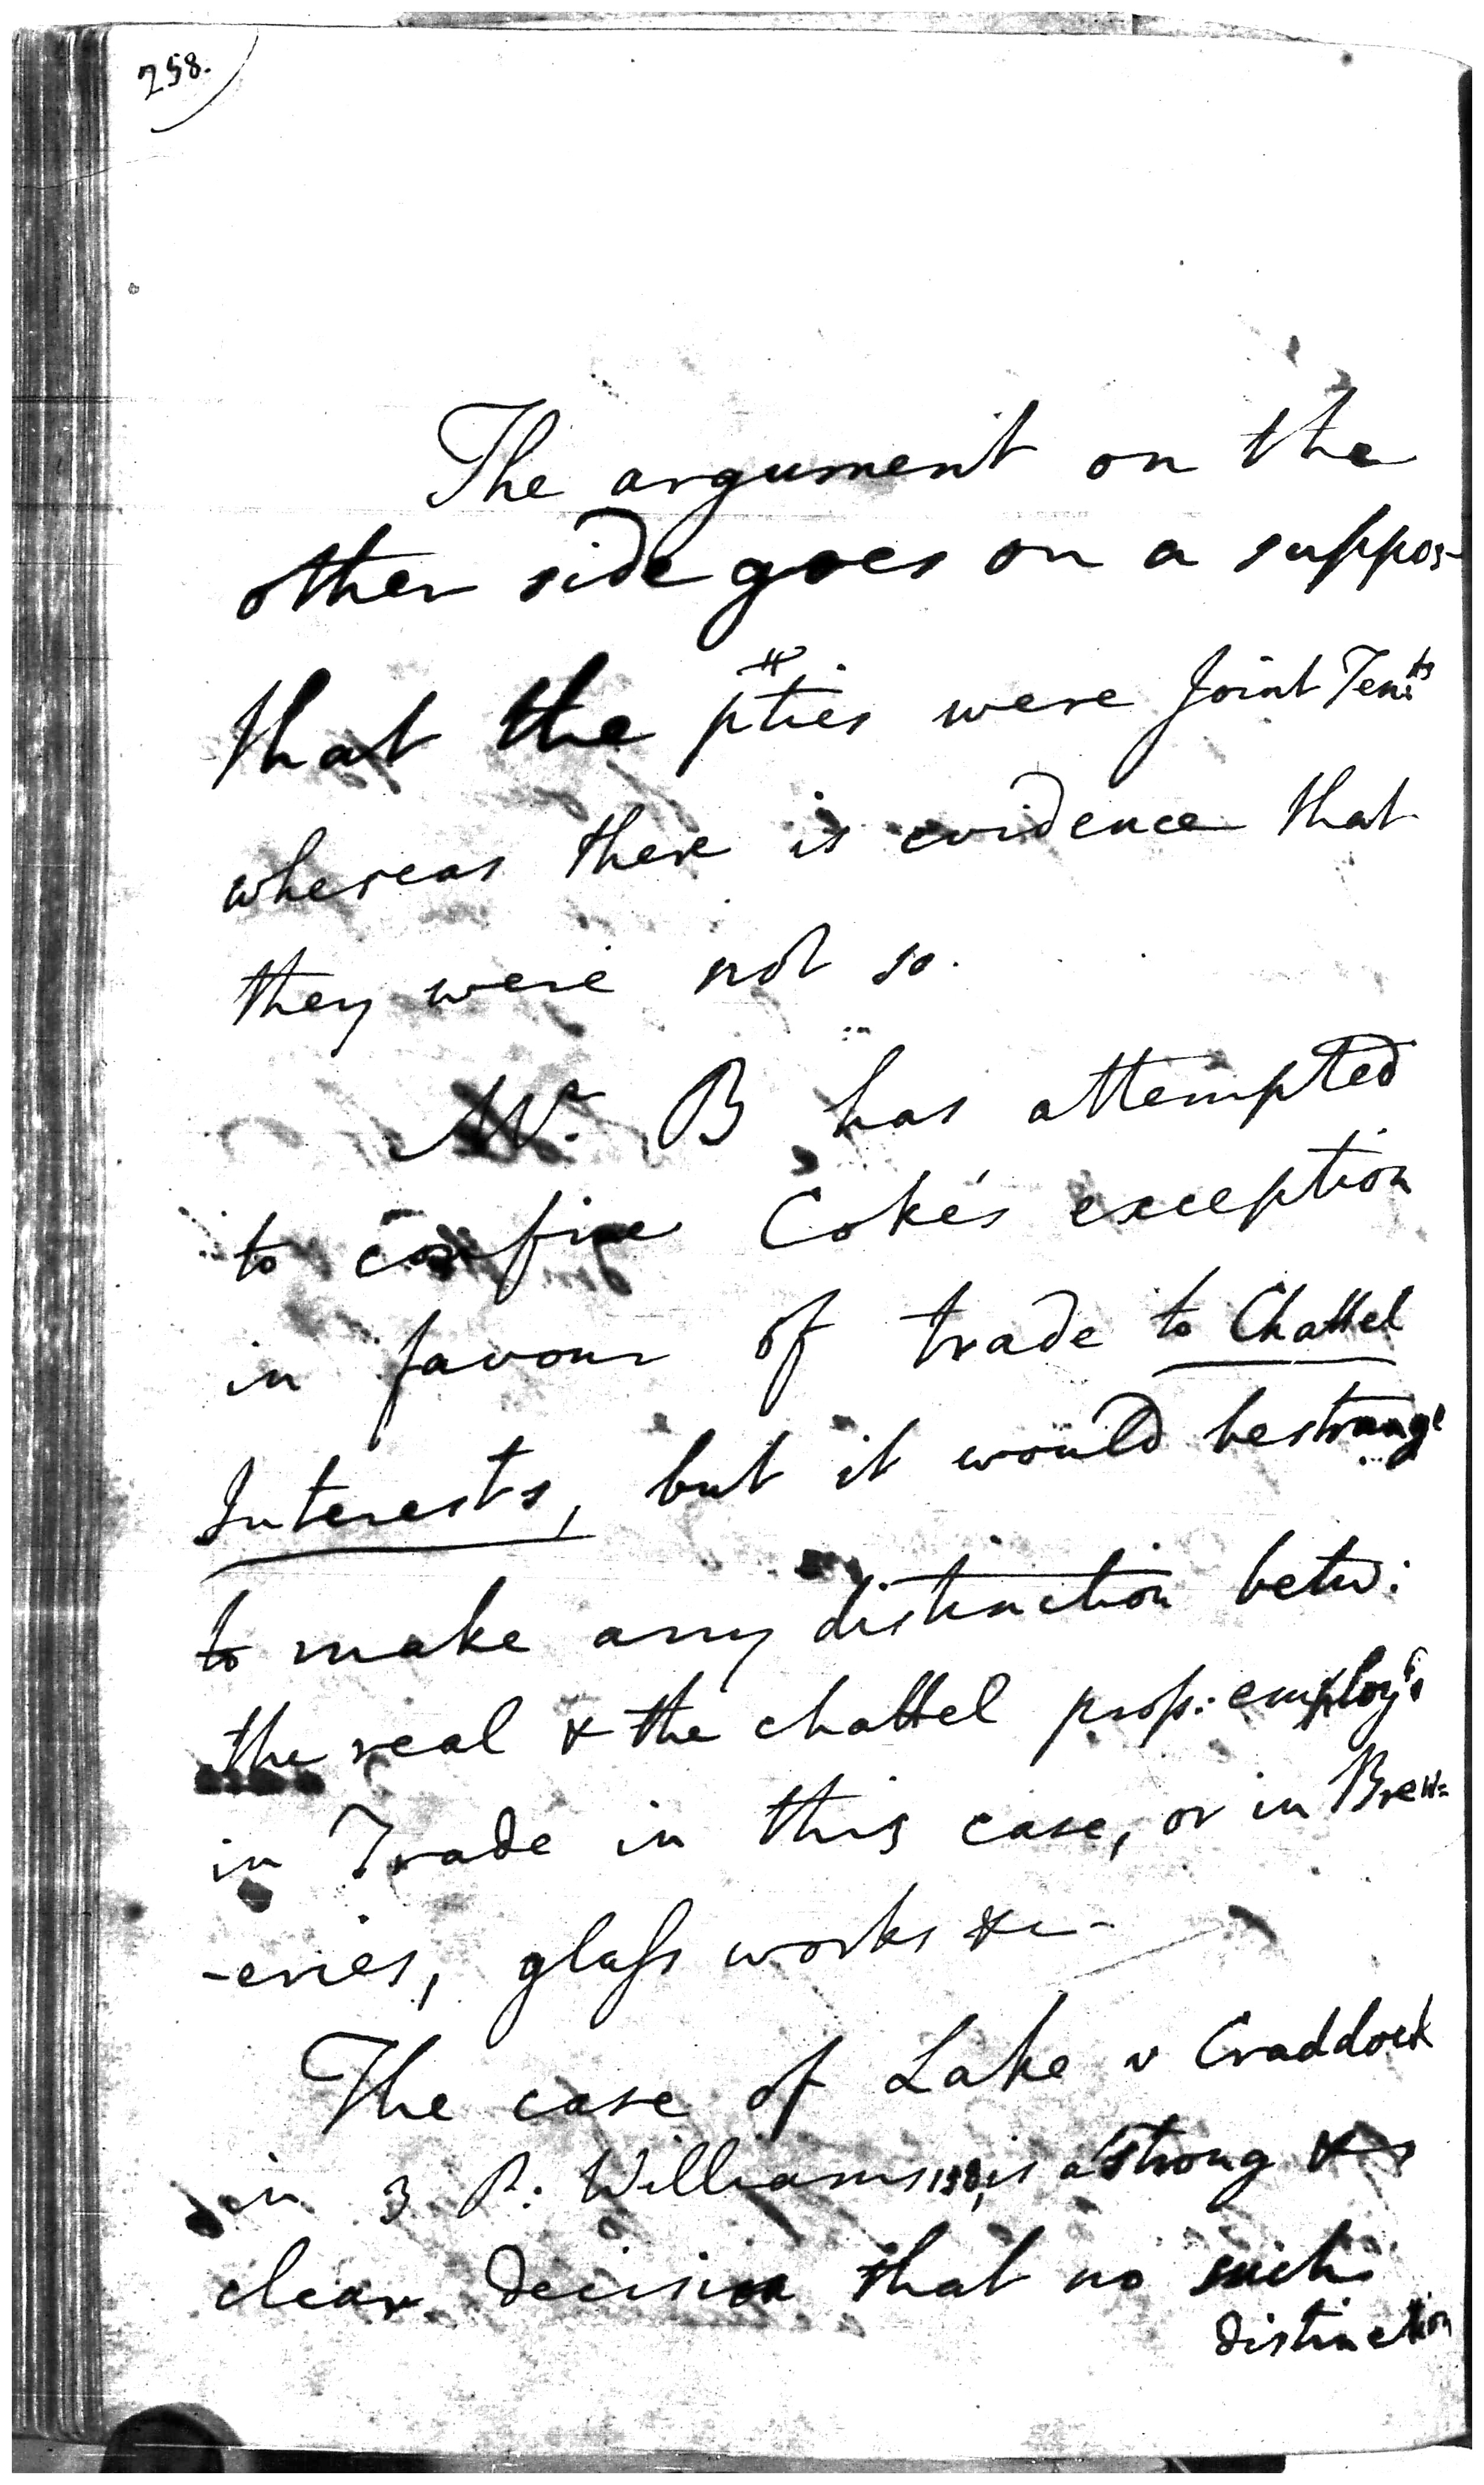 258.
The argument on the
other side goes on a suppos-
that the pties were Joint Tents
whereas there is evidence that
they were not so.
Mr. B has attempted
to confine Coke's exception
in favour of trade to Chattel
Interests, but it would be strange
to make any distinction betw:
the real & the chattel prop: employ'd
in Trade in this case, or in Brew=
-eries, glass works &c-
The case of Lake v Craddock
in 3 P: Williams 158, is a strong &
clear decision that no such
distinction